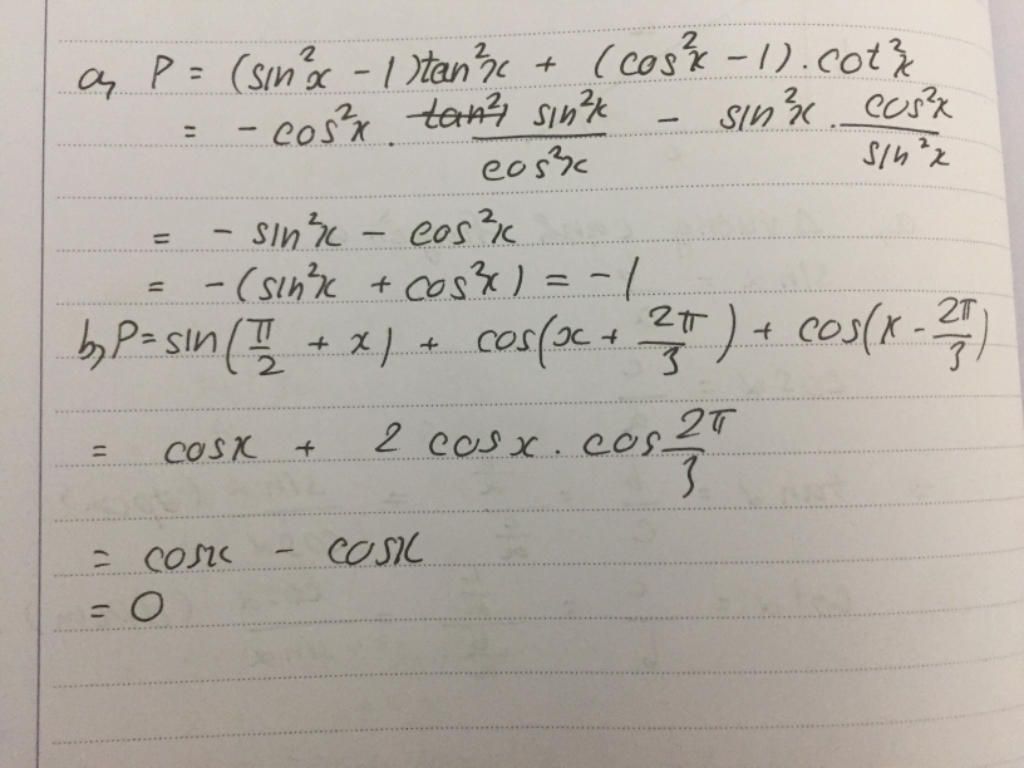 a, P = (sin²x - 1)tan²x + (cos²x - 1).cot²x
= - cos²x. tan² sin²x/cos²x - sin²x. cos²x/sin²x
= - sin²x - cos²x
= -(sin²x + cos²x) = -1
b, P = sin(π/2 + x) + cos(x + 2π/3) + cos(x - 2π/3)
= cosx + 2 cosx. cos 2π/3
= cosx - cosx
= 0